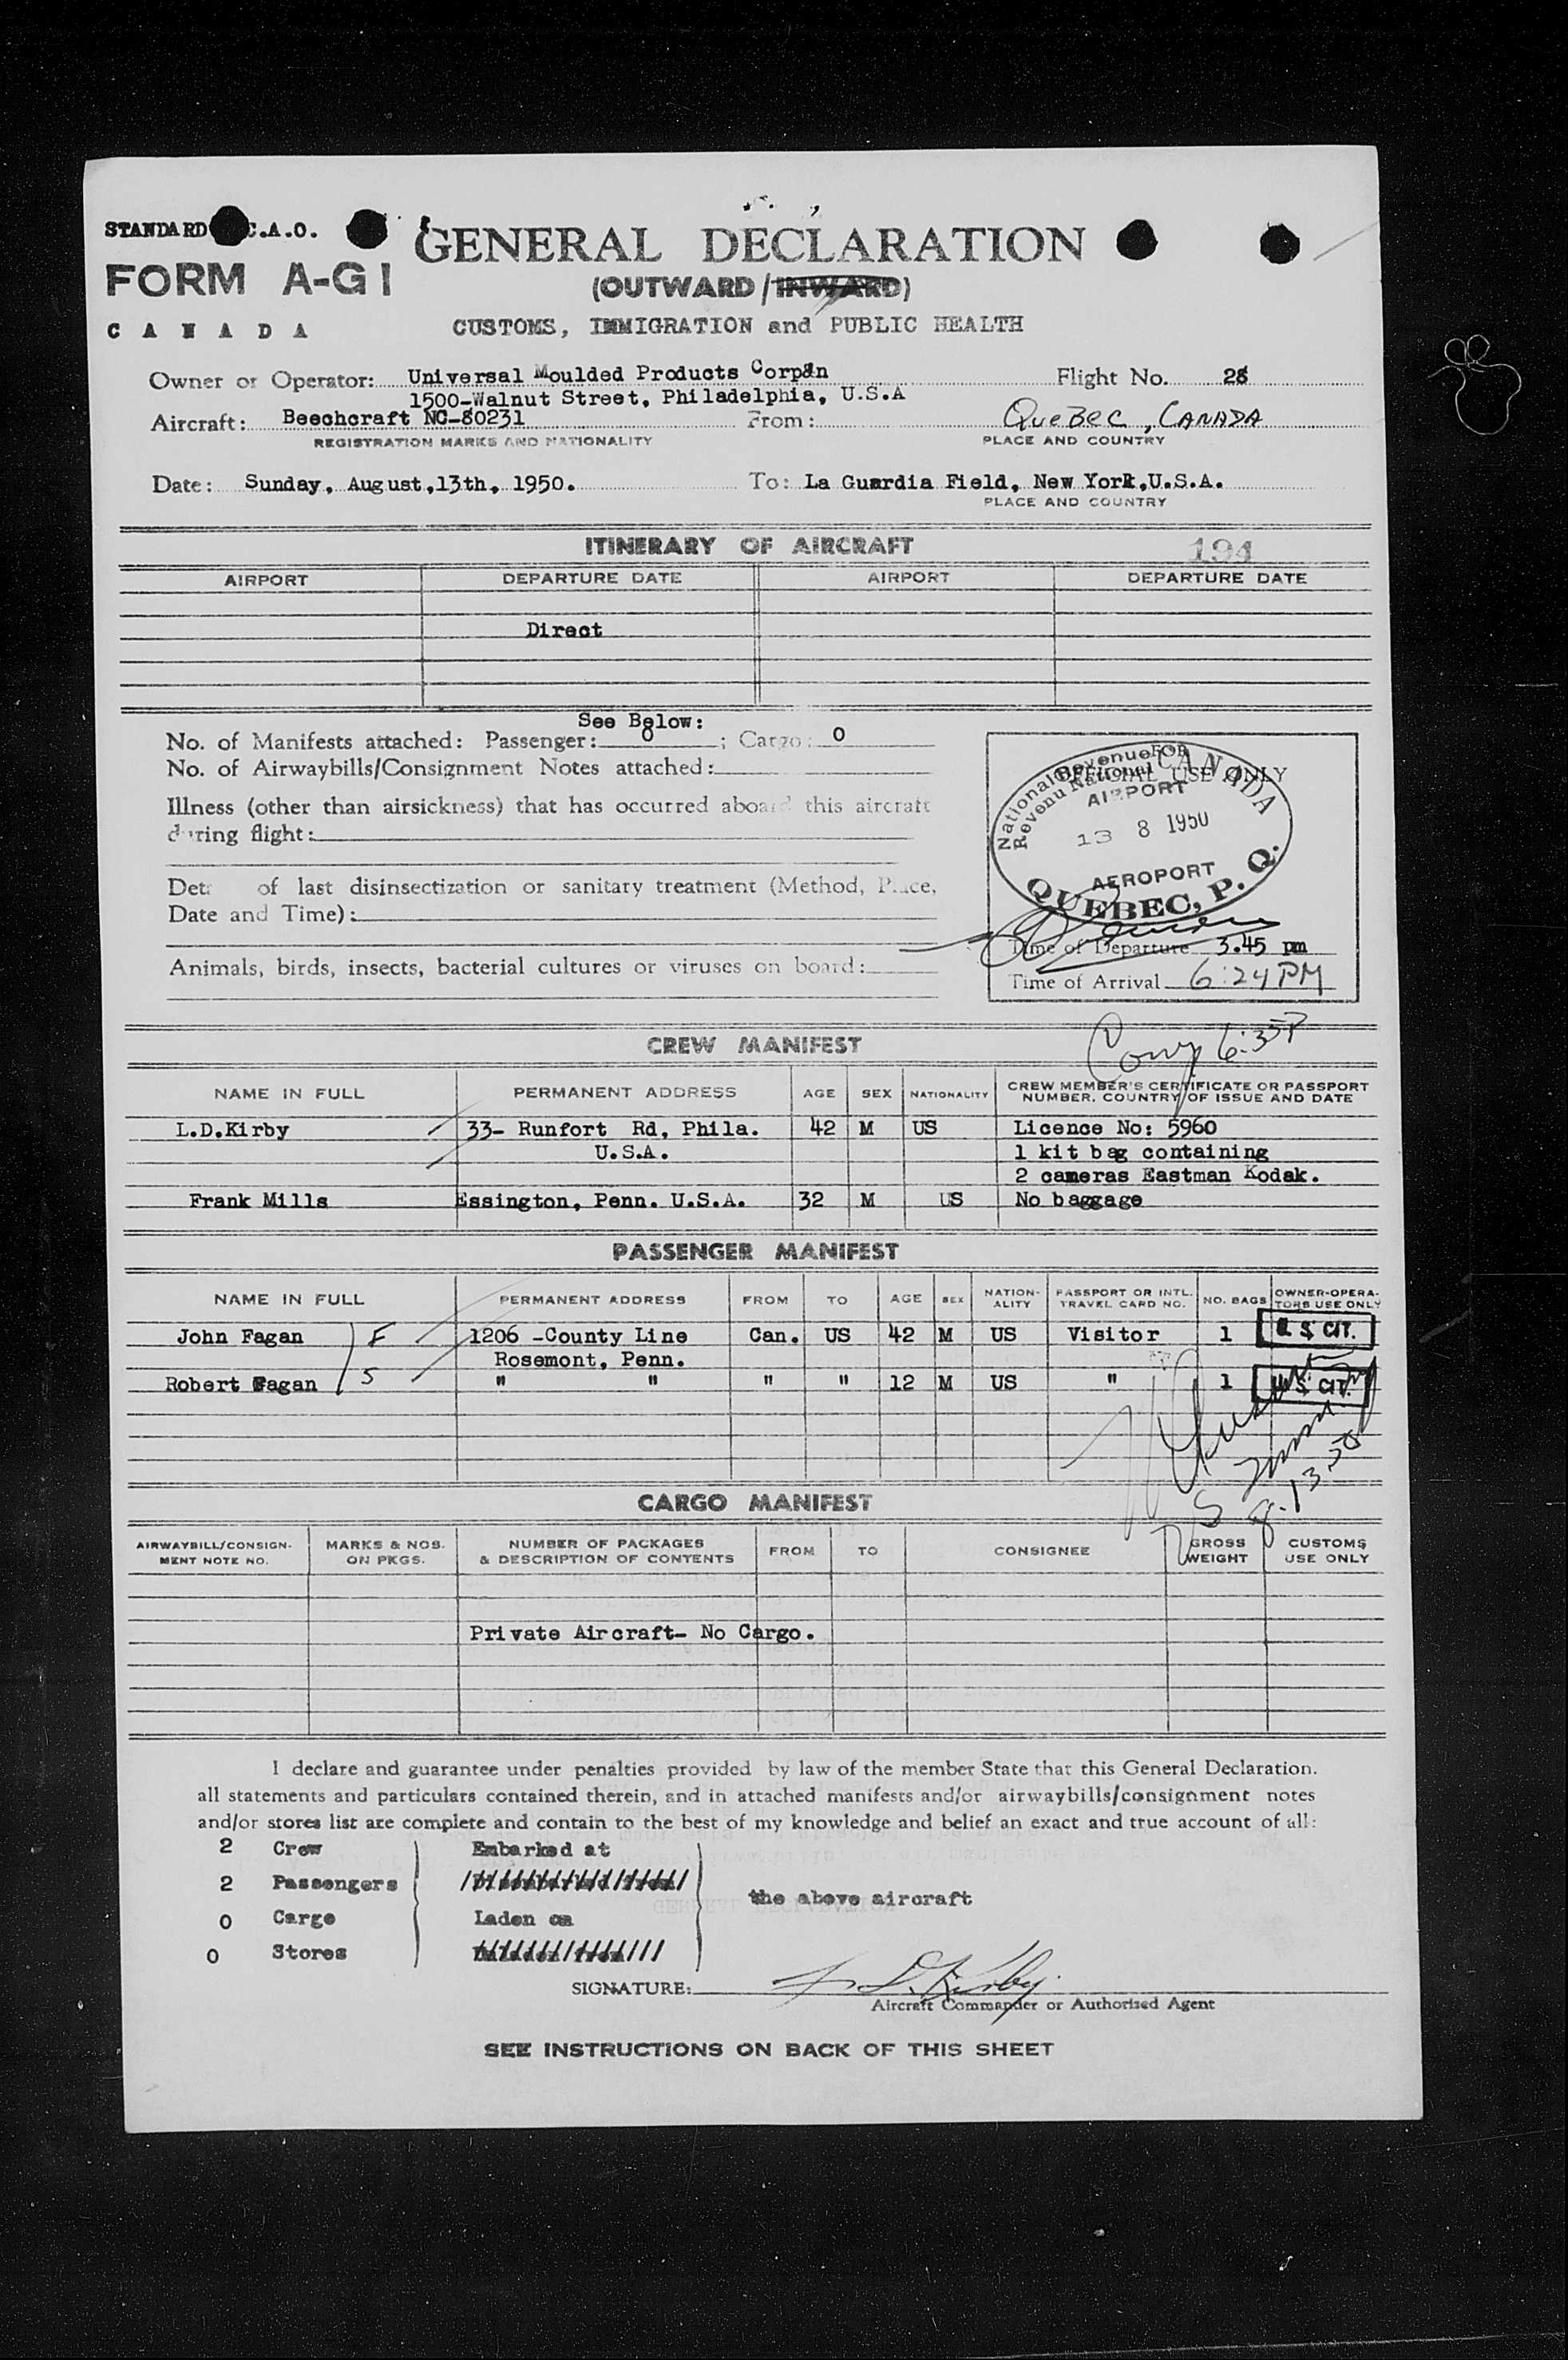 STANDARD C.A.O.
GENERAL DECLARATION
FORM A-G1
(OUTWARD/INWARD)
CANADA
CUSTOMS, IMMIGRATION and PUBLIC HEALTH
Owner or Operator: Universal Moulded Products Corpän Flight No.
1500-Walnut Street, Philadelphia, U.S.A
Aircraft: Beechcraft NC-80231 From: QUEBEC, CANADA
REGISTRATION MARKS AND NATIONALITY PLACE AND COUNTRY
Date: Sunday, August,13th, 1950. To: La Guardia Field, New York,U.S.A.
PLACE AND COUNTRY
ITINERARY OF AIRCRAFT 194
AIRPORT DEPARTURE DATE AIRPORT DEPARTURE DATE
Direct
See Below:
No. of Manifests attached: Passenger: 0 ; Cargo: 0
No. of Airwaybills/Consignment Notes attached:
Illness (other than airsickness) that has occurred aboard this aircraft
during flight:
of last disinsectization or sanitary treatment (Method, Place,
Date and Time):
Animals, birds, insects, bacterial cultures or viruses on board:
FOR
OFFICIAL USE ONLY
National Revenue CANADA
Revenu National
AIRPORT
13 8 1950
AEROPORT
QUEBEC, P. Q.
Time of Departure 3.45 pm
Time of Arrival 6:24 PM
CREW MANIFEST
NAME IN FULL PERMANENT ADDRESS AGE SEX NATIONALITY CREW MEMBER'S CERTIFICATE OR PASSPORT
NUMBER, COUNTRY OF ISSUE AND DATE
L.D.Kirby 33- Runfort Rd, Phila. 42 M US Licence No: 5960
U.S.A. 1 kit bag containing
2 cameras Eastman Kodak.
Frank Mills Essington, Penn. U.S.A. 32 M US No baggage
PASSENGER MANIFEST
NAME IN FULL PERMANENT ADDRESS FROM TO AGE SEX NATION-ALITY PASSPORT OR INTL. TRAVEL CARD NO. NO. BAGS OWNER-OPERA-TORS USE ONLY
John Fagan F 1206 -County Line Can. US 42 M US Visitor 1 U. S. CIT.
Rosemont, Penn.
Robert Fagan S " " " " 12 M US " 1 U. S. CIT.
8.13.50
CARGO MANIFEST
AIRWAYBILL/CONSIGN-MENT NOTE NO. MARKS & NOS. ON PKGS. NUMBER OF PACKAGES & DESCRIPTION OF CONTENTS FROM TO CONSIGNEE GROSS WEIGHT CUSTOMS USE ONLY
Private Aircraft- No Cargo.
I declare and guarantee under penalties provided by law of the member State that this General Declaration.
all statements and particulars contained therein, and in attached manifests and/or airwaybills/consignment notes
and/or stores list are complete and contain to the best of my knowledge and belief an exact and true account of all:
2 Crew Embarked at
2 Passengers
the above aircraft
0 Cargo Laden on
0 Stores
SIGNATURE: L. D. Kirby
Aircraft Commander or Authorized Agent
SEE INSTRUCTIONS ON BACK OF THIS SHEET